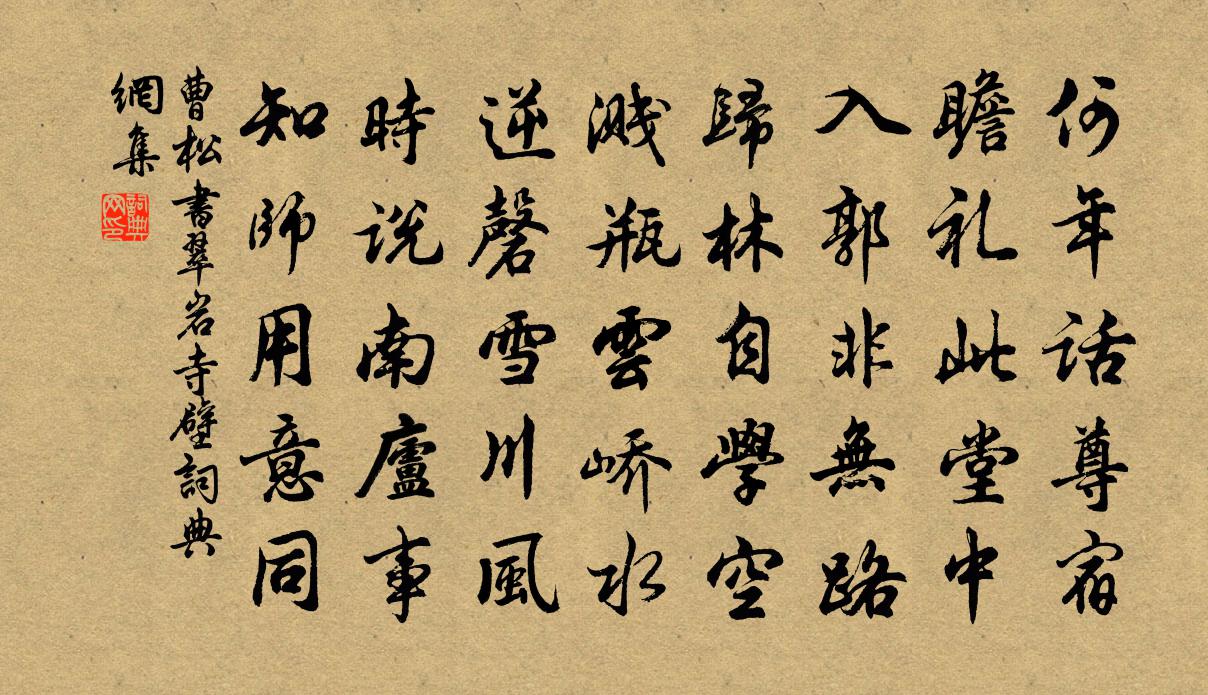 何年話尊宿
瞻礼此堂中
入郭非無路
歸林自學空
溅瓶雲嶠水
逆磬雪川風
時说南廬事
知師用意同
曹松書翠岩寺壁詞典
網集
詞典网印